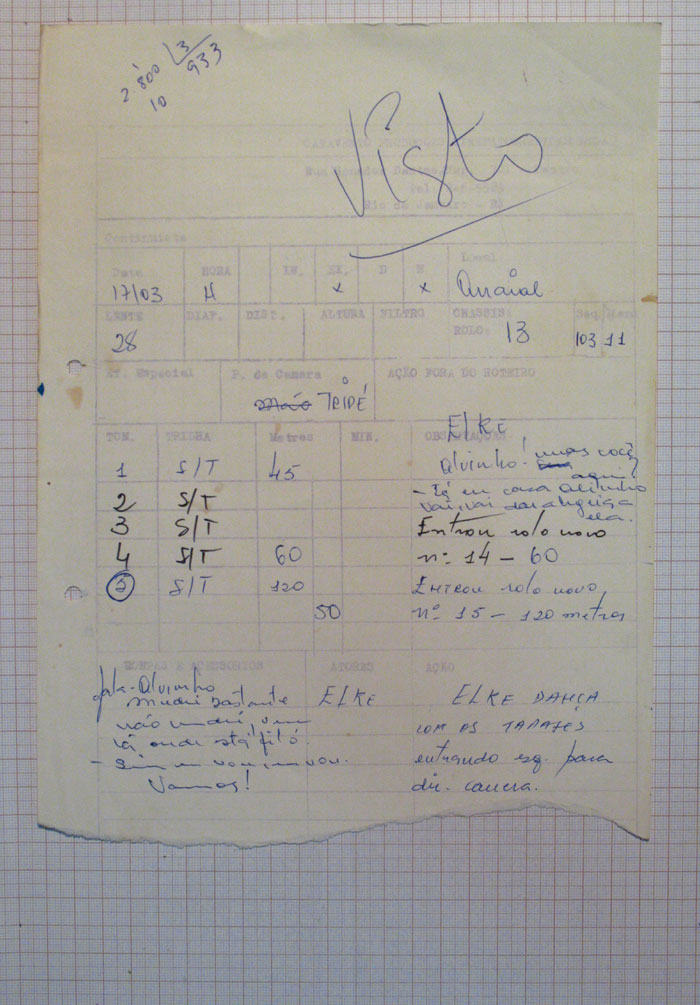 2'800 3
10 933
Visto
Rio de Janeiro - RJ
Continuista
Data HORA IN. EX. D N Local
17/03 H x x Arraial
LENTE DIAF. DIST. ALTURA FILTRO CHASSIS Seq. Plano
28 ROLO: 13 103 11
Ef. Especial P. de Camara AÇÃO FORA DO ROTEIRO
mão TRIPÉ
ELKE
TOM. TRILHA Metros MIN. OBSERVAÇÕES
1 S/T 45 Alvinho! você
aqui?
2 S/T - Tá em casa Alvinho
vai, vai dar
ela.
3 S/T Entrou rolo novo
4 S/T 60 nº 14 - 60
5 S/T 120 Entrou rolo novo
50 nº 15 - 120 metros
ROUPAS E ACESSORIOS ATORES AÇÃO
fala - Alvinho
mudei bastante ELKE ELKE DANÇA
não mudei, vem COM OS
lá onde stá entrando esq. para
- Sim eu vou, eu vou. dir. camera.
Vamos!